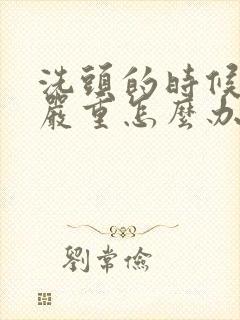 洗頭的時候
嚴重怎麼办
劉常儉